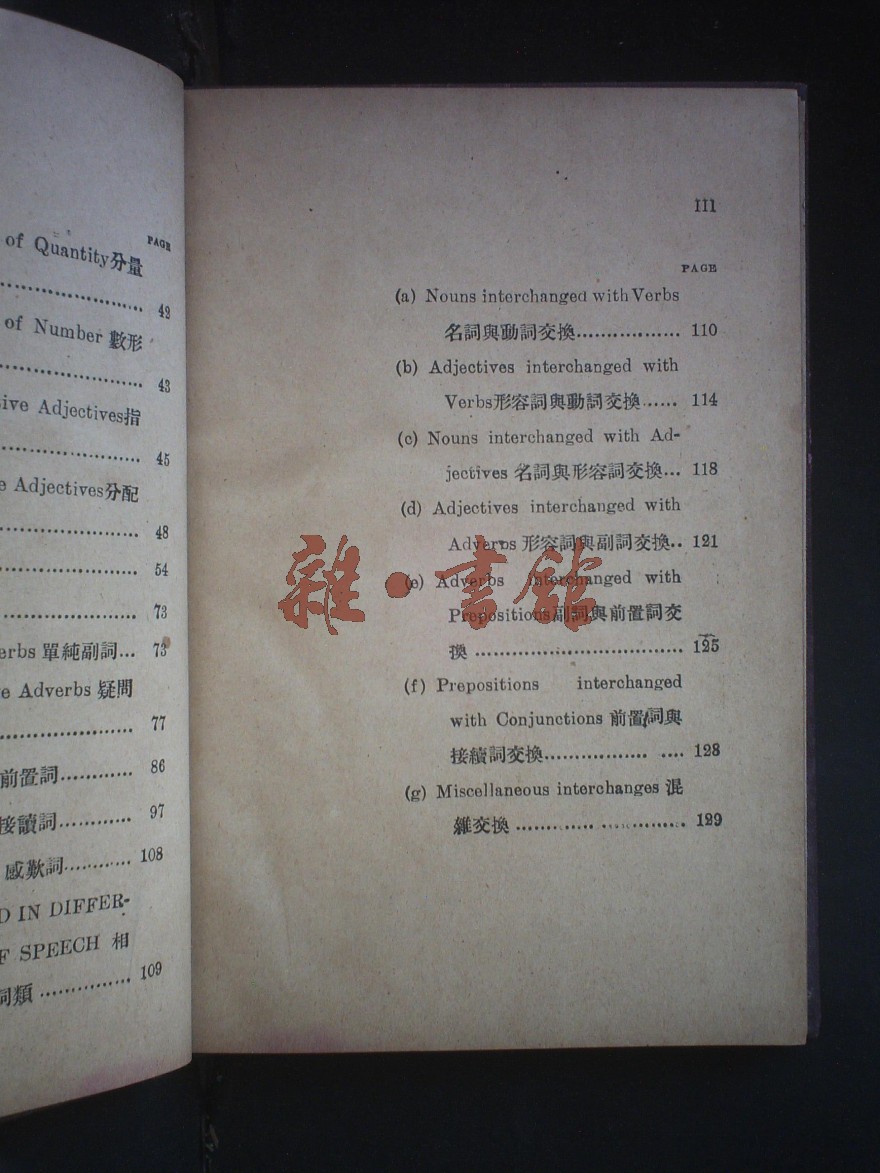 PAGE
of Quantity分量
49
of Number 數形
43
sive Adjectives指
45
e Adjectives分配
48
54
73
erbs 單純副詞... 73
e Adverbs 疑問
77
前置詞............ 86
接讀詞............ 97
感歎詞............ 108
D IN DIFFER-
F SPEECH 相
詞類 .............. 109
III
PAGE
(a) Nouns interchanged with Verbs
名詞與動詞交換.................. 110
(b) Adjectives interchanged with
Verbs形容詞與動詞交換...... 114
(c) Nouns interchanged with Ad-
jectives 名詞與形容詞交換... 118
(d) Adjectives interchanged with
Adverbs 形容詞與副詞交換.. 121
(e) Adverbs interchanged with
Prepositions副詞與前置詞交
換 .................................. 125
(f) Prepositions interchanged
with Conjunctions 前置詞與
接續詞交換.................. .... 128
(g) Miscellaneous interchanges 混
雜交換 .............................. 129
雜·書館